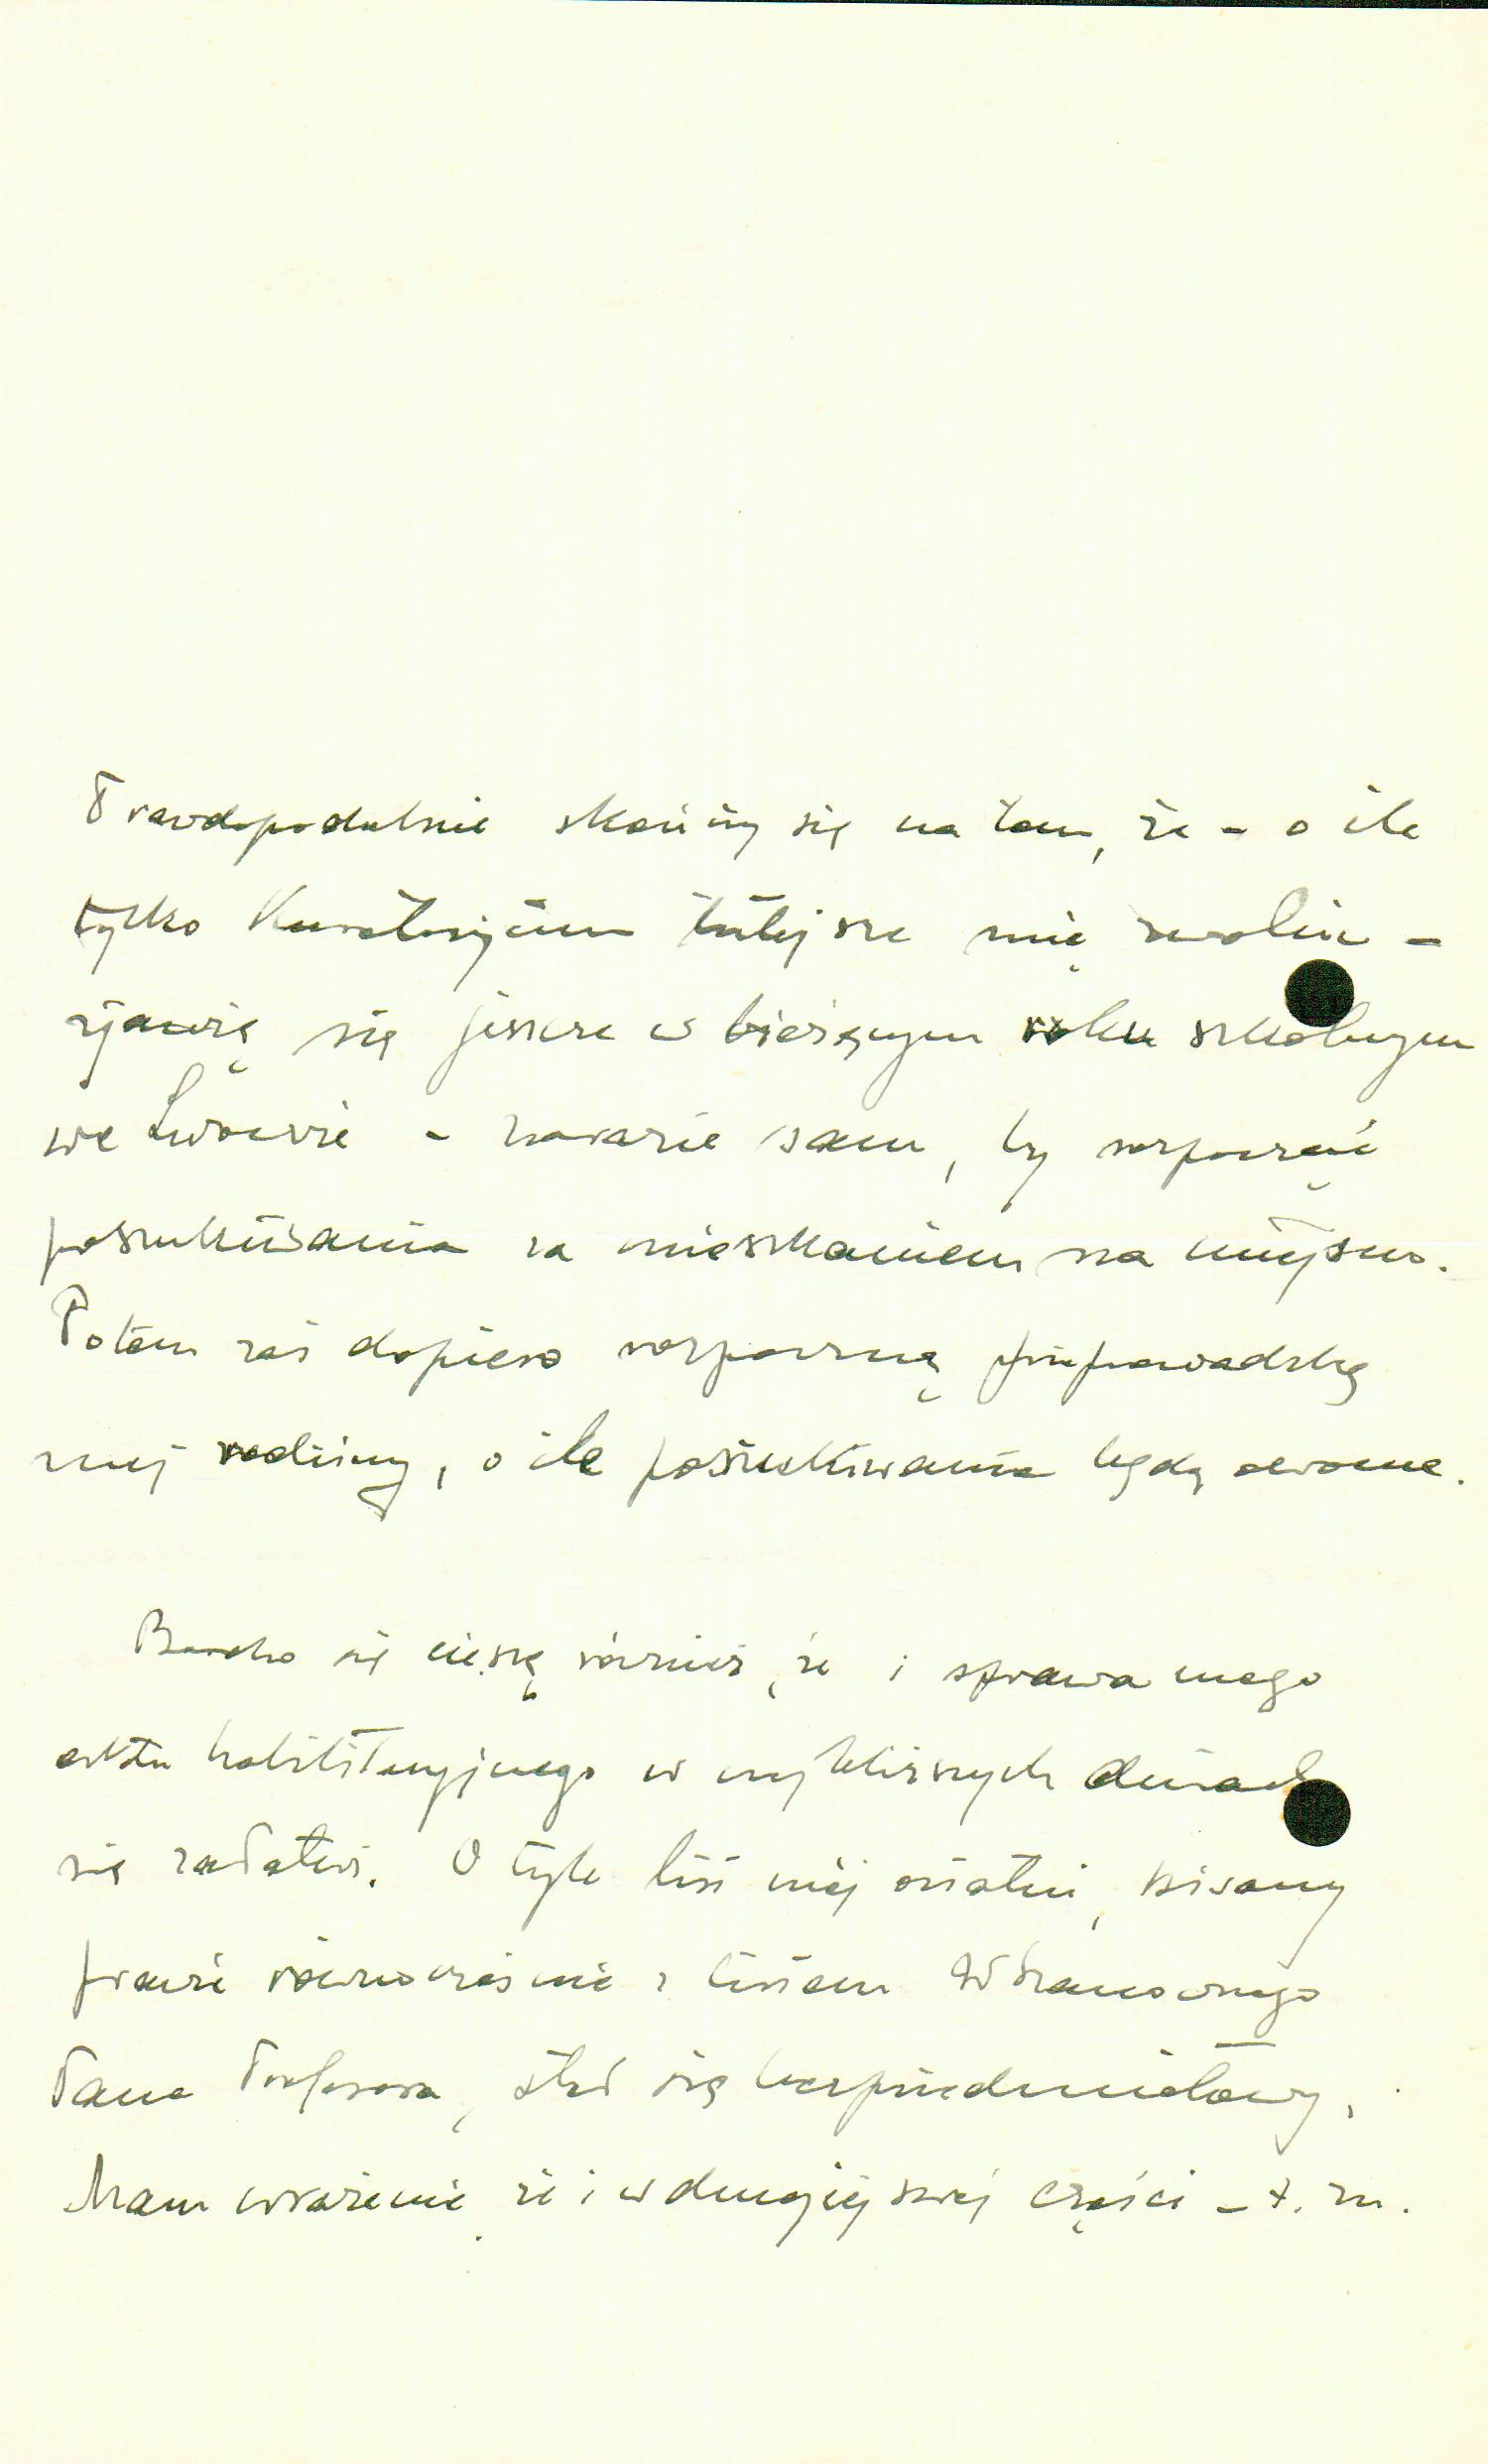 Prawdopodobnie skończy się na tem, że – o ile
tylko Kuratorjum tutejsze mię zwolni –
zjawię się jeszcze w bieżącym roku szkolnym
we Lwowie – narazie sam, by rozpocząć
poszukiwania za mieszkaniem na miejscu.
Potem zaś dopiero rozpocznę przeprowadzkę
mej rodziny, o ile poszukiwania będą owocne.
Bardzo się cieszę również, że i sprawa mego
aktu habilitacyjnego w najbliższych dniach
się załatwi. O tyle list mój ostatni, pisany
prawie równocześnie z listem WSzanownego
Pana Profesora, stał się bezprzedmiotowy.
Mam wrażenie, że i w drugiej swej części – t. zn.